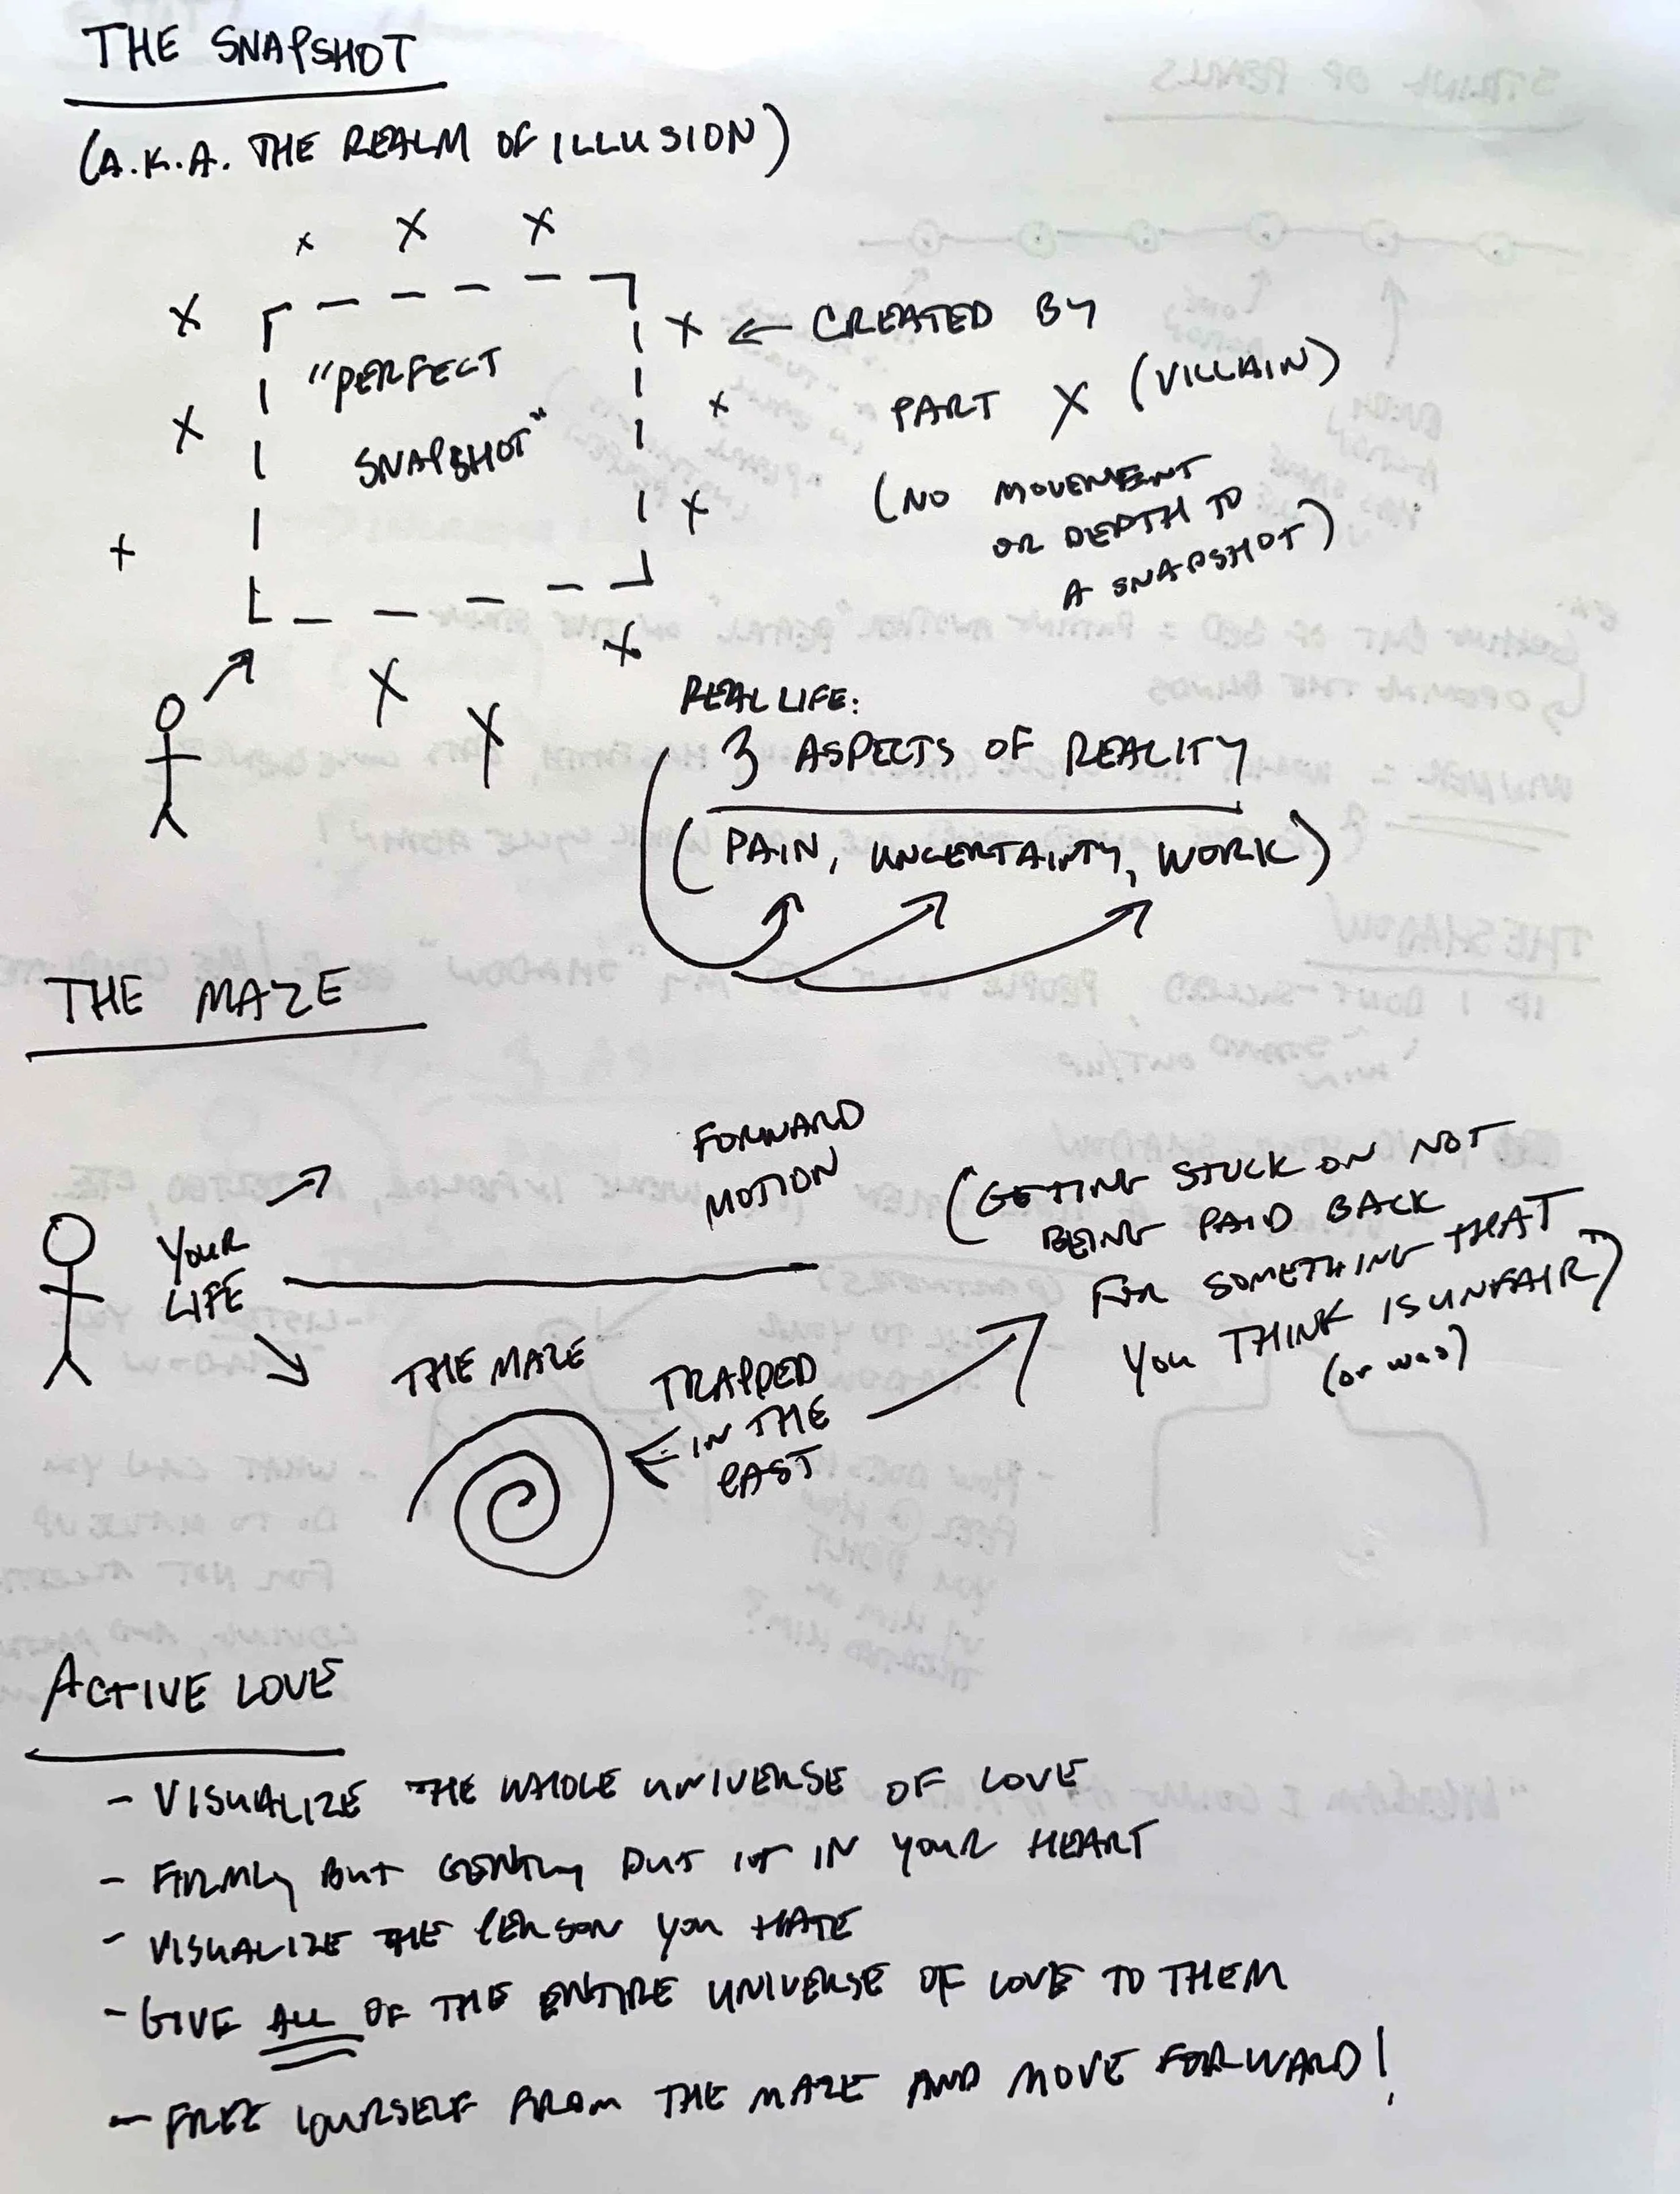 THE SNAPSHOT
(A.K.A. THE REALM OF ILLUSION)
X X X
X
X
X
X
X
X
X
X
X
"PERFECT
SNAPSHOT"
← CREATED BY
PART X (VILLAIN)
(NO MOVEMENT
OR DEPTH TO
A SNAPSHOT)
REAL LIFE:
3 ASPECTS OF REALITY
(PAIN, UNCERTAINTY, WORK)
THE MAZE
YOUR
LIFE
FORWARD
MOTION
THE MAZE
TRAPPED
IN THE
PAST
(GETTING STUCK ON NOT
BEING PAID BACK
FOR SOMETHING THAT
YOU THINK IS UNFAIR)
(or was)
ACTIVE LOVE
- VISUALIZE THE WHOLE UNIVERSE OF LOVE
- FIRMLY BUT GENTLY PUT IT IN YOUR HEART
- VISUALIZE THE PERSON YOU HATE
- GIVE ALL OF THE ENTIRE UNIVERSE OF LOVE TO THEM
- FREE YOURSELF FROM THE MAZE AND MOVE FORWARD!